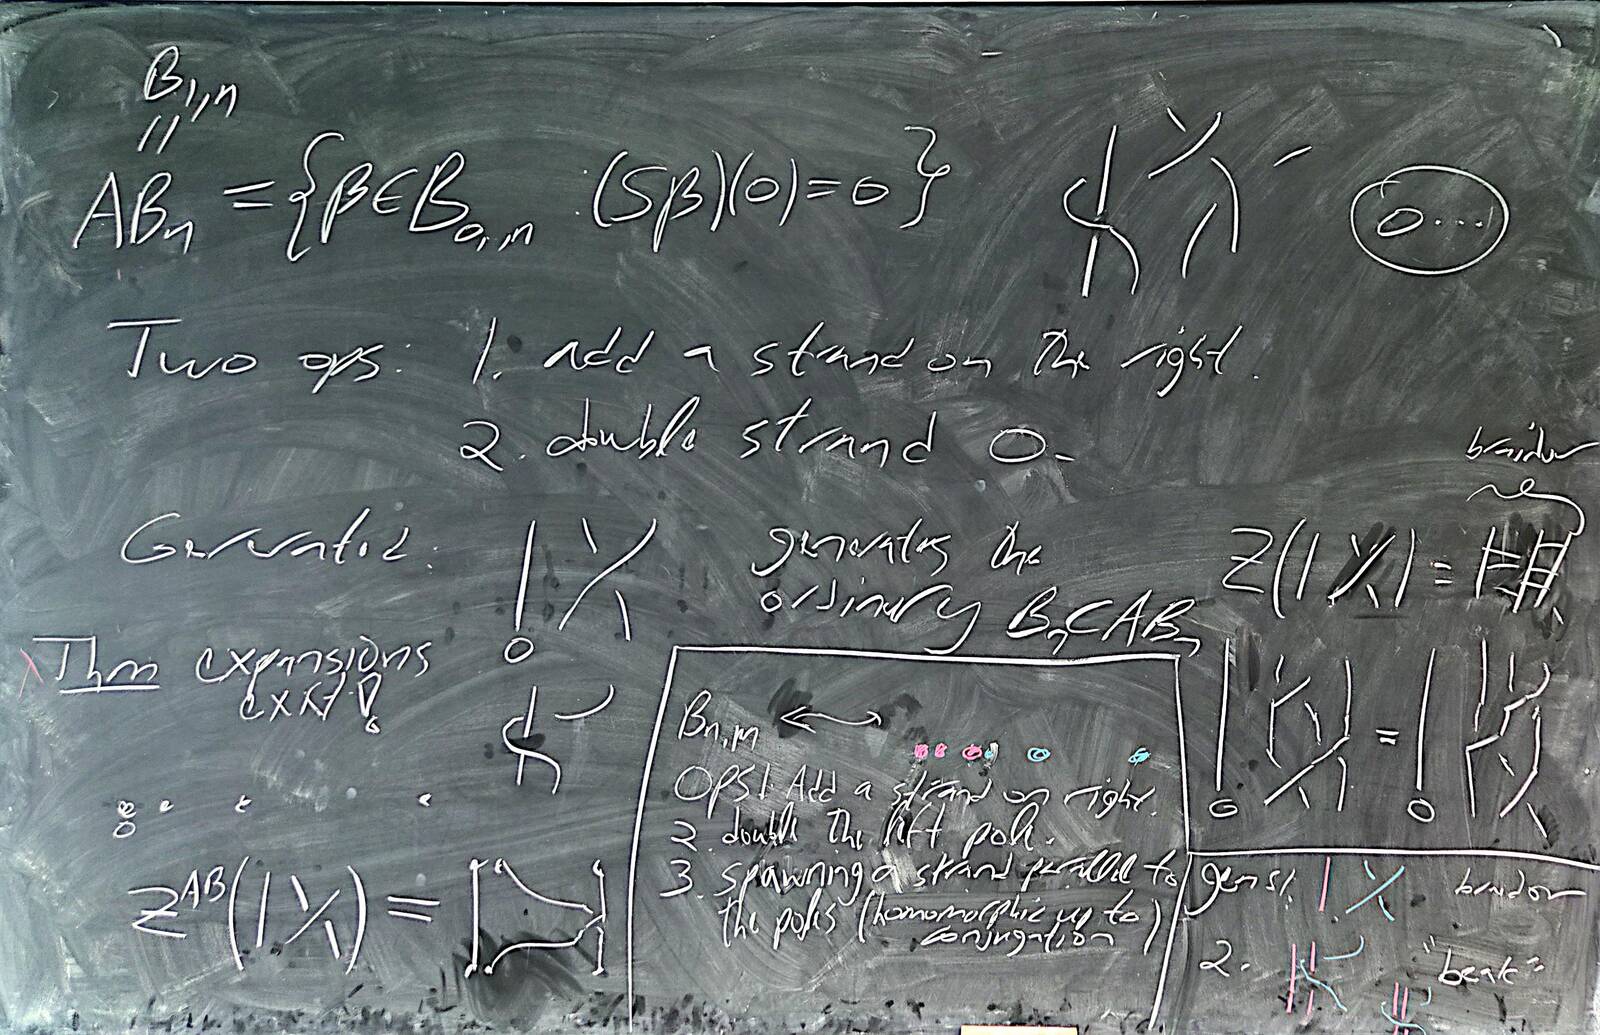 B₁,ₙ
||
ABₙ = {β∈B₀,ₙ (Sβ)(0)=0}
0...
Two ops: 1. add a strand on the right.
2. double strand 0.
braidor
Generated:
generates the
ordinary Bₙ⊂ABₙ
Z(|X) =
0
Thm expansions
exist!
Bn,m ↔
OPS: 1. Add a strand on right.
2. double the left pole.
3. spawning a strand parallel to
the poles (homomorphic up to
conjugation)
=
0 0
Z^AB(|X) =
gens: braidor
2. "beak"